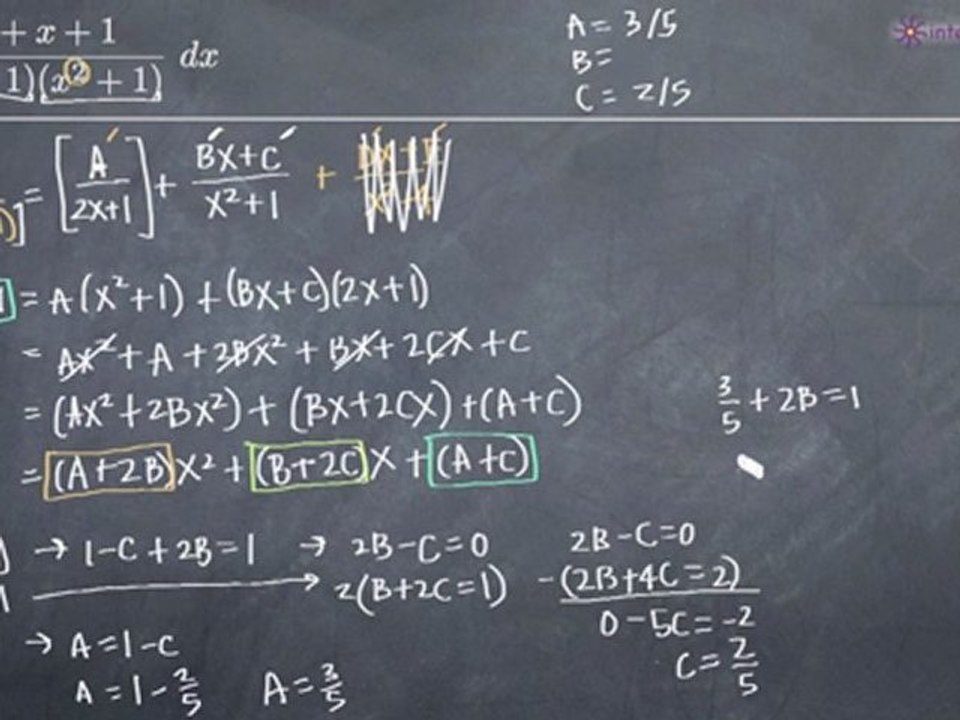 + x + 1
1)(x² + 1) dx
A = 3/5
B =
C = 2/5
inte
= [A/2x+1] + Bx+C/x²+1 +
= A(x²+1) + (Bx+C)(2x+1)
= Ax² + A + 2Bx² + Bx + 2Cx + C
= (Ax² + 2Bx²) + (Bx+2Cx) + (A+C)
3/5 + 2B = 1
= (A+2B)x² + (B+2C)x + (A+C)
→ 1-C+2B=1 → 2B-C=0
2(B+2C=1)
2B-C=0
-(2B+4C=2)
0-5C=-2
C=2/5
→ A=1-C
A=1-2/5 A=3/5